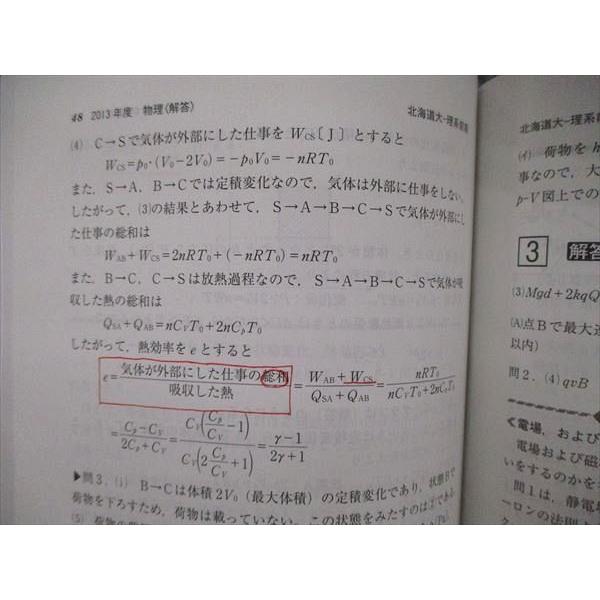 48 2013年度 物理(解答)
北海道大-理系前期
(4) C→Sで気体が外部にした仕事を W_CS〔J〕とすると
W_CS=p₀·(V₀-2V₀)=-p₀V₀=-nRT₀
また，S→A，B→Cでは定積変化なので，気体は外部に仕事をしない。
したがって，(3)の結果とあわせて，S→A→B→C→Sで気体が外部にし
た仕事の総和は
W_AB+W_CS=2nRT₀+(-nRT₀)=nRT₀
また，B→C，C→Sは放熱過程なので，S→A→B→C→Sで気体が吸
収した熱の総和は
Q_SA+Q_AB=nC_VT₀+2nC_pT₀
したがって，熱効率を e とすると
e=気体が外部にした仕事の総和/吸収した熱=(W_AB+W_CS)/(Q_SA+Q_AB)=nRT₀/(nC_VT₀+2nC_pT₀)
=(C_p-C_V)/(2C_p+C_V)=C_V(C_p/C_V-1)/C_V(2C_p/C_V+1)=(γ-1)/(2γ+1)
▶問3．(i) B→Cは体積2V₀（最大体積）の定積変化であり，状態Bで
荷物を下ろすため，荷物は載っていない。この状態をみたすのは②である
北海道大-理系
(イ) 荷物を
事なので，大
p-V図上での
3 解答
(3)Mgd+2kqQ
(A)点Bで最大速
以内）
問2．(4)qvB
＜電場，および
電場および磁
いをするのかを
問1は，静電場
ーロンの法則